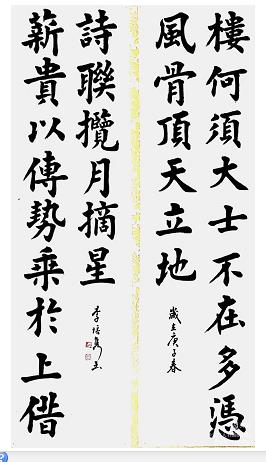 樓何須大士不在多憑
風骨頂天立地
歲在庚子春
薪貴以傳勢乘於上借
詩聯攬月摘星